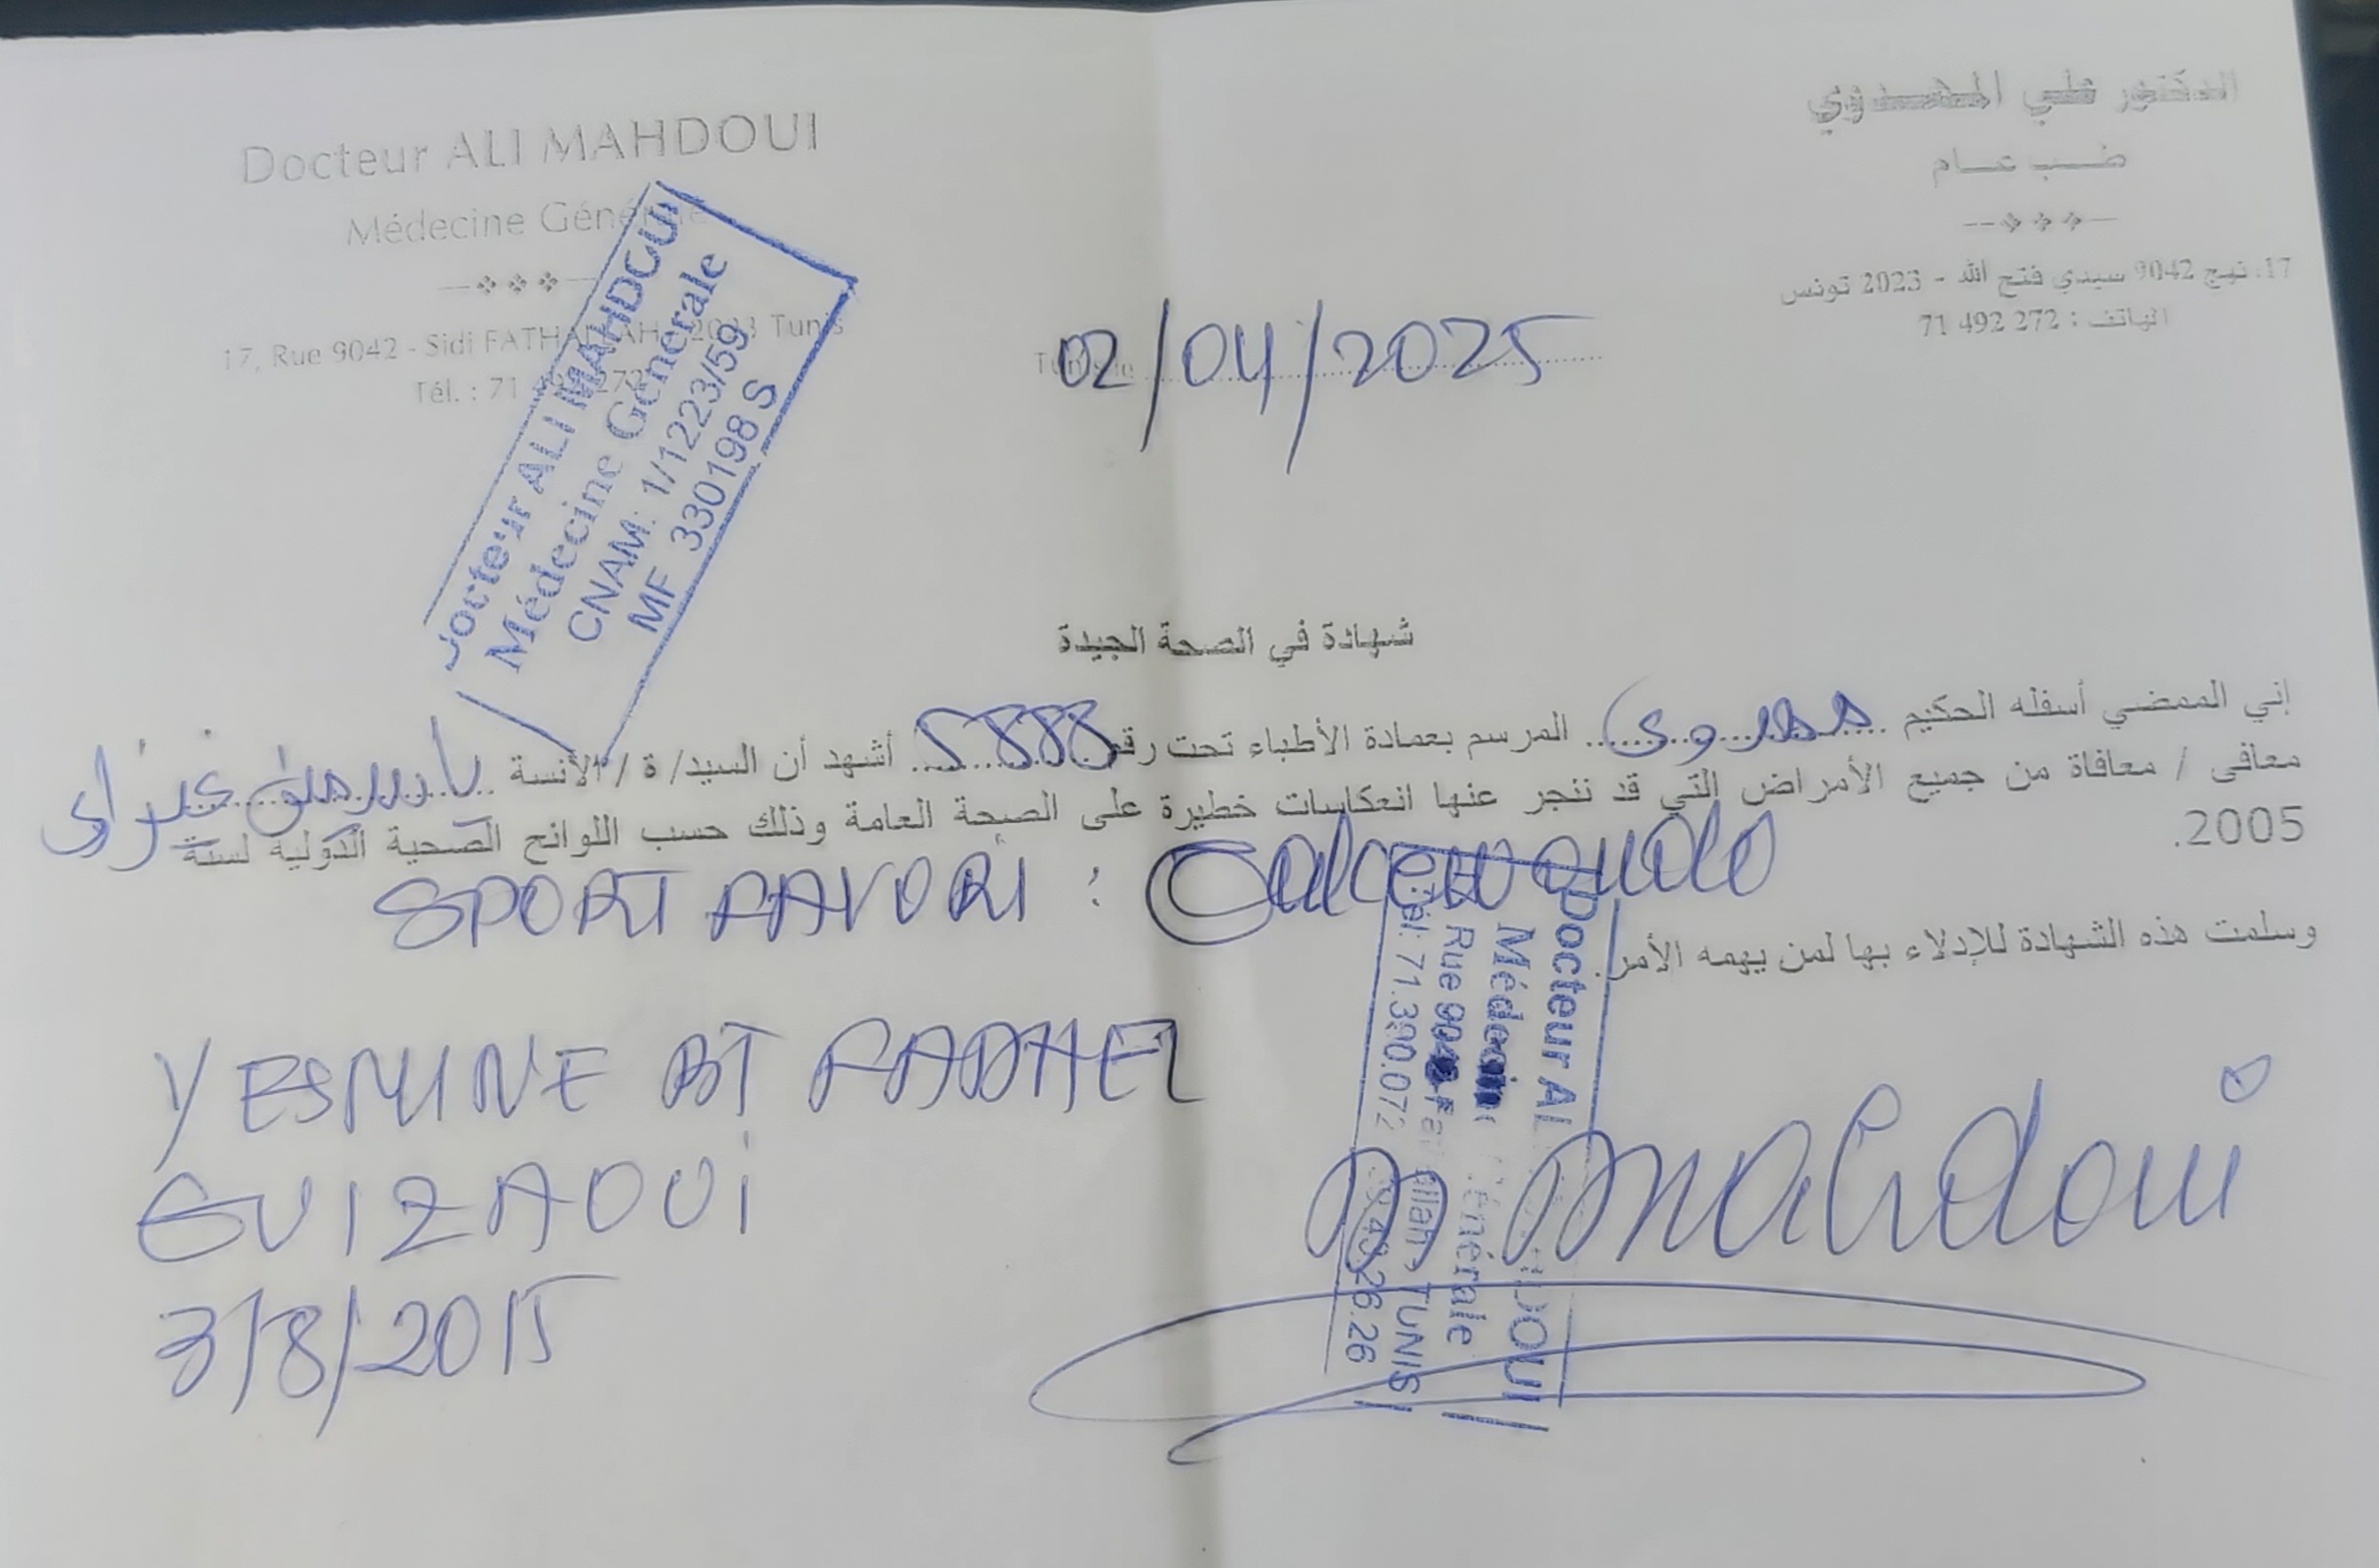 Docteur ALI MAHDOUI
Médecine Générale
17, Rue 9042 - Sidi FATHALLAH - 2023 Tunis
Tél. : 71 492 272
الدكتور علي المهدوي
طب عام
17، نهج 9042 سيدي فتح الله - 2023 تونس
الهاتف : 272 492 71
Docteur ALI MAHDOUI
Médecine Générale
CNAM: 1/1223/59
MF 330198 S
Tunis le 02/04/2025
شهادة في الصحة الجيدة
إني الممضي أسفله الحكيم مهدوي المرسم بعمادة الأطباء تحت رقم 5888 أشهد أن السيد/ ة / الآنسة ياسمين غيزاوي
معافى / معافاة من جميع الأمراض التي قد تنجر عنها انعكاسات خطيرة على الصحة العامة وذلك حسب اللوائح الصحية الدولية لسنة
2005.
SPORT FAVORI :
وسلمت هذه الشهادة للإدلاء بها لمن يهمه الأمر.
YESMINE BT FADHEL
GUIZAOUI
3/8/2015
Docteur ALI MAHDOUI
Médecine Générale
Rue 9042 Fathallah - TUNIS
Tél: 71.390.072
Dr Mahdoui